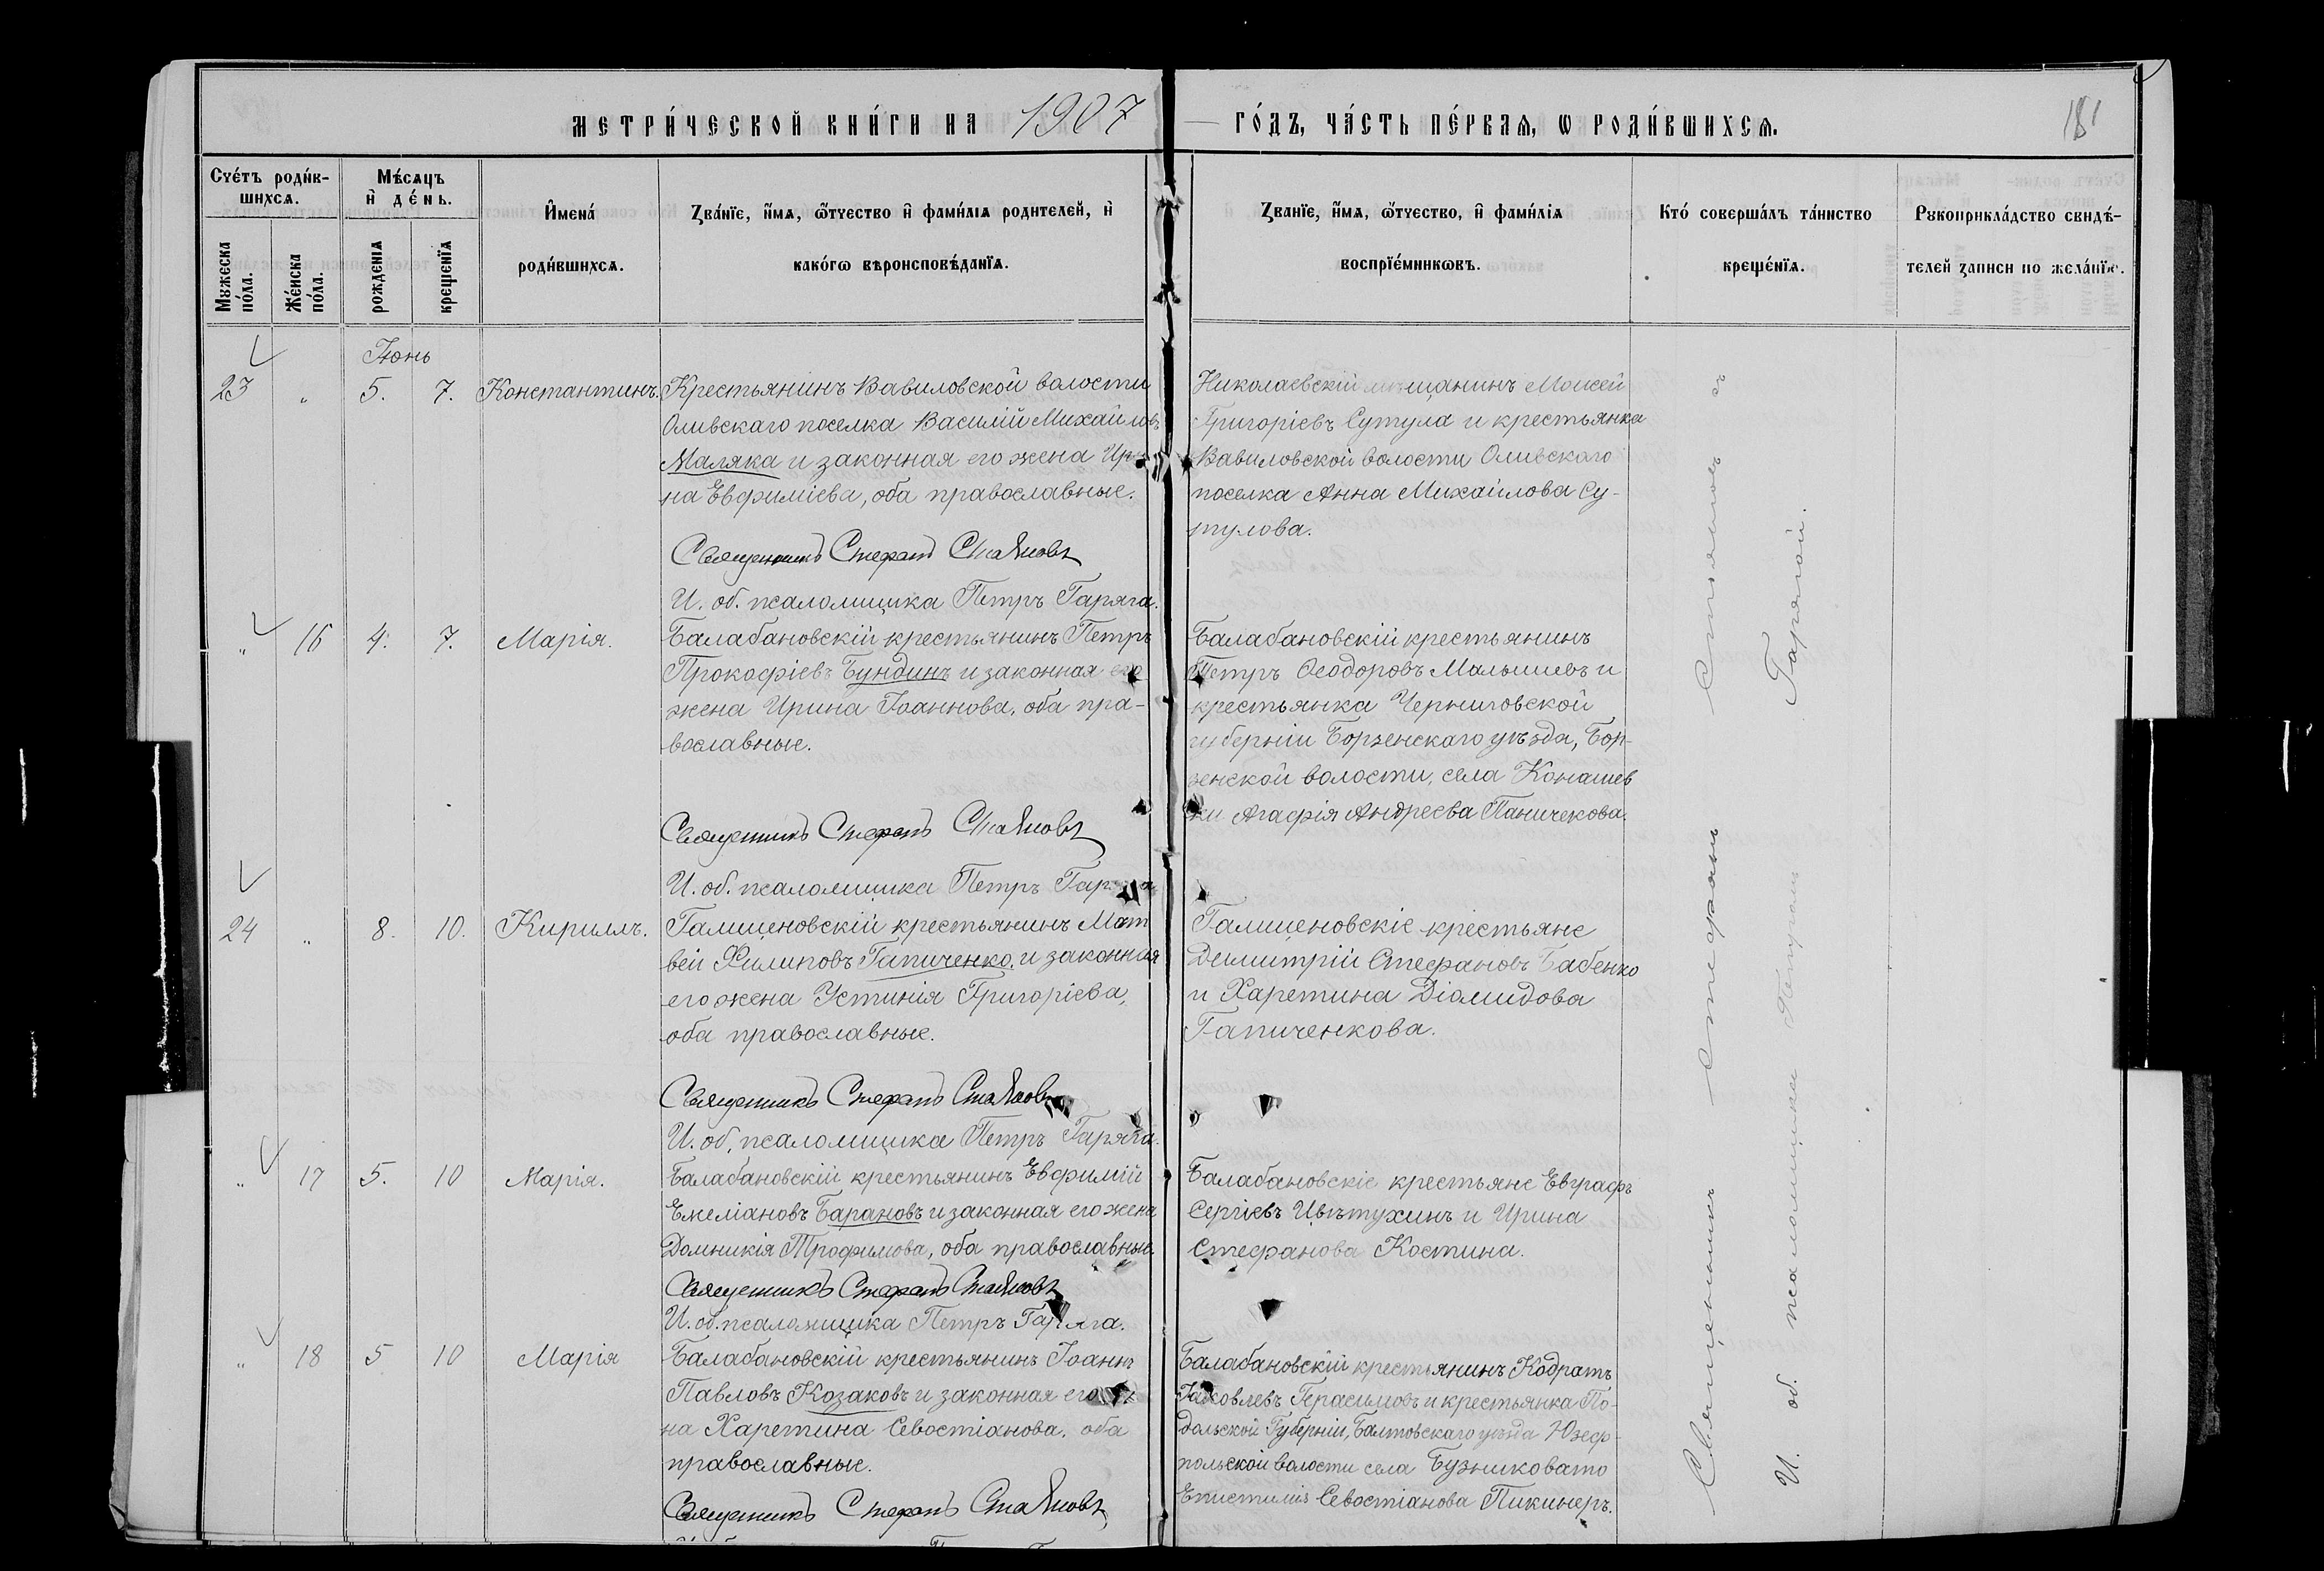 МЕТРИ́ЧЕСКОЙ КНИ́ГИ НА 1907
ГО́ДЪ, ЧА́СТЬ ПЕ́РВАЯ, Ѡ РОДИ́ВШИХСѦ.
181
Сче́тъ роди́в-
шихсѧ.
Мꙋжеска
по́ла.
Же́нска
по́ла.
Мѣ́сѧцъ
и҆ де́нь.
рожденїѧ
крещенїѧ
И҆мена́
роди́вшихсѧ.
Зва́нїе, и҆́мѧ, ѻ҆́тчество и҆ фамѝлїѧ родителей, и҆
како́гѡ вѣроисповѣ́данїѧ.
Званїе, и҆́мѧ, ѻ҆́тчество, и҆ фами́лїѧ
воспрїе́мникѡвъ.
Кто́ соверша́лъ та́инство
креще́нїѧ.
Рꙋкоприкла́дство свидѣ́-
телей записи по жела́нїю.
Іюнь
23 „ 5. 7. Константинъ.
Крестьянинъ Вавиловской волости
Оливскаго поселка Василій Михайловъ
Маляка и законная его жена Ири
на Евфиміева, оба православные.
Священникъ Стефанъ
И. об. псаломщика Петръ Гаряга.
Николаевскій мѣщанинъ Моисей
Григоріевъ Сутула и крестьянка
Вавиловской волости Оливскаго
поселка Анна Михайлова Су-
тулова.
„ 16 4. 7. Марія.
Балабановскій крестьянинъ Петръ
Прокофіевъ Бундинъ и законная его
жена Ирина Іоаннова, оба пра-
вославные.
Священникъ Стефанъ
И. об. псаломщика Петръ
Балабановскій крестьянинъ
Петръ Ѳеодоровъ Малышевъ и
крестьянка Черниговской
губерніи Борзенскаго уѣзда, Бор-
зенской волости, села Конашев
ки Агафія Андреева Паничекова.
24 „ 8. 10. Кириллъ.
Галициновскій крестьянинъ Мат
вей Филиповъ Гапиченко и законная
его жена Устинія Григоріева,
оба православные.
Священникъ Стефанъ
И. об. псаломщика Петръ Гаряга.
Галициновскіе крестьяне
Димитрій Стефановъ Бабенко
и Харетина Діомидова
Гапиченкова.
„ 17 5. 10 Марія.
Балабановскій крестьянинъ Евфимій
Емеліановъ Барановъ и законная его жена
Домникія Трофимова, оба православные.
Священникъ Стефанъ
И. об. псаломщика Петръ Гаряга.
Балабановскіе крестьяне Евграфъ
Сергіевъ Цвѣтухинъ и Ирина
Стефанова Костина.
„ 18 5 10 Марія
Балабановскій крестьянинъ Іоаннъ
Павловъ Козаковъ и законная его же
на Харетина Севостіанова, оба
православные.
Священникъ Стефанъ
Балабановскій крестьянинъ Кодратъ
Іаковлевъ Герасимовъ и крестьянка По-
дольской Губерніи, Балтовскаго уѣзда Юзеф-
польской волости села Бузниковато
Епистимія Севостіанова Пикинеръ.
Священникъ Стефанъ
И. об. псаломщика Петръ Гарягой.